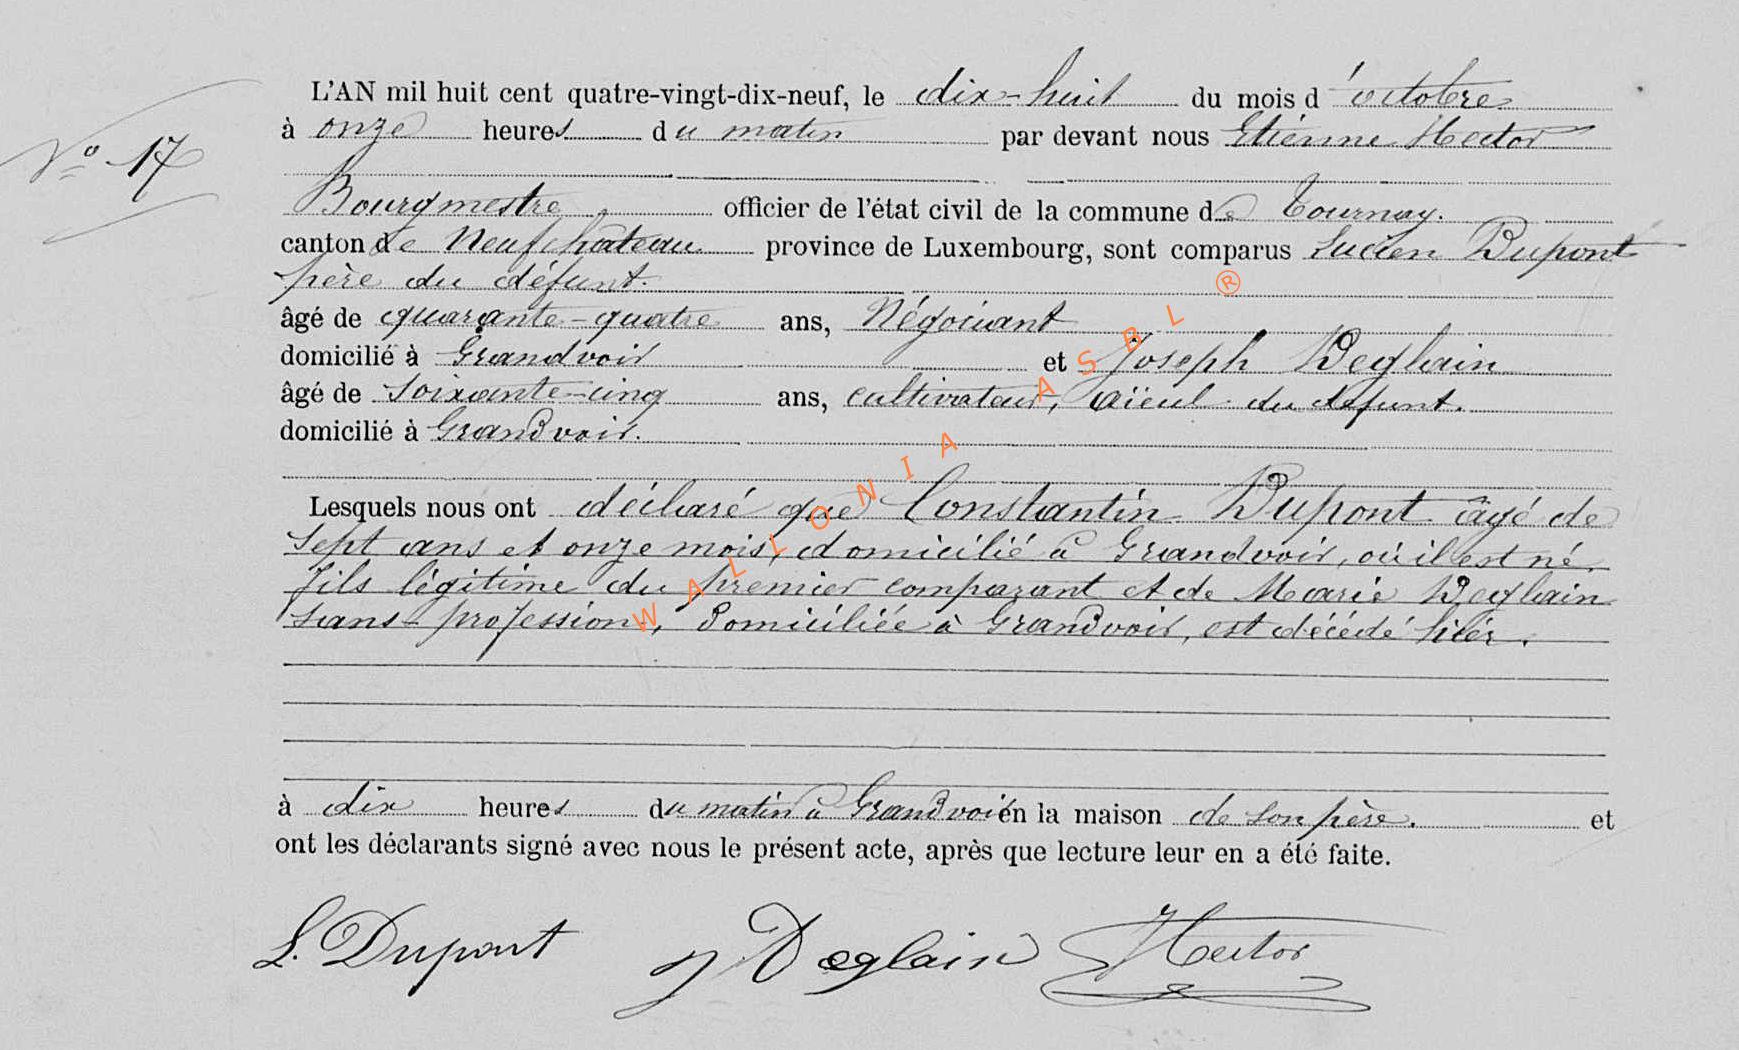 L'AN mil huit cent quatre-vingt-dix-neuf, le dix-huit du mois d'octobre
à onze heures du matin par devant nous Etienne Hector
N° 17
Bourgmestre, officier de l'état civil de la commune de Tournay.
canton de Neufchâteau province de Luxembourg, sont comparus Lucien Dupont
père du défunt.
âgé de quarante-quatre ans, Négociant
domicilié à Grandvoir et Joseph Deglain
âgé de soixante-cinq ans, cultivateur, aïeul du défunt.
domicilié à Grandvoir.
Lesquels nous ont déclaré que Constantin Dupont âgé de
sept ans et onze mois, domicilié à Grandvoir, où il est né,
fils légitime du premier comparant et de Marie Deglain
sans profession, domiciliée à Grandvoir, est décédé hier.
à dix heures du matin à Grandvoir en la maison de son père. et
ont les déclarants signé avec nous le présent acte, après que lecture leur en a été faite.
L. Dupont J Deglain Hector
WALLONIA ASBL ®